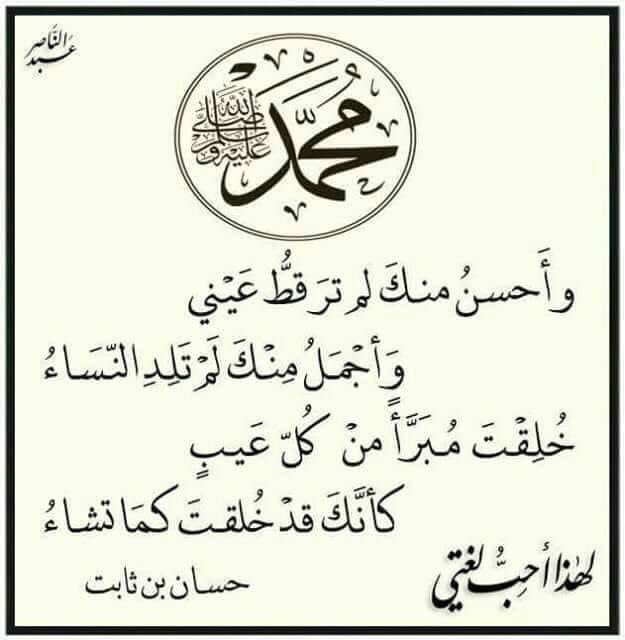 عبد الناصر
محمد صلى الله عليه وسلم
وأَحسنُ منكَ لم ترَ قطُّ عَيْني
وَأجْمَلُ مِنْكَ لَمْ تَلِدِ النّسَاءُ
خُلِقْتَ مُبَرَّأً منْ كُلّ عَيبٍ
كأنَّكَ قدْ خُلقتَ كمَا تشاءُ
حسان بن ثابت
لهٰذا أحِبُّ لغتي